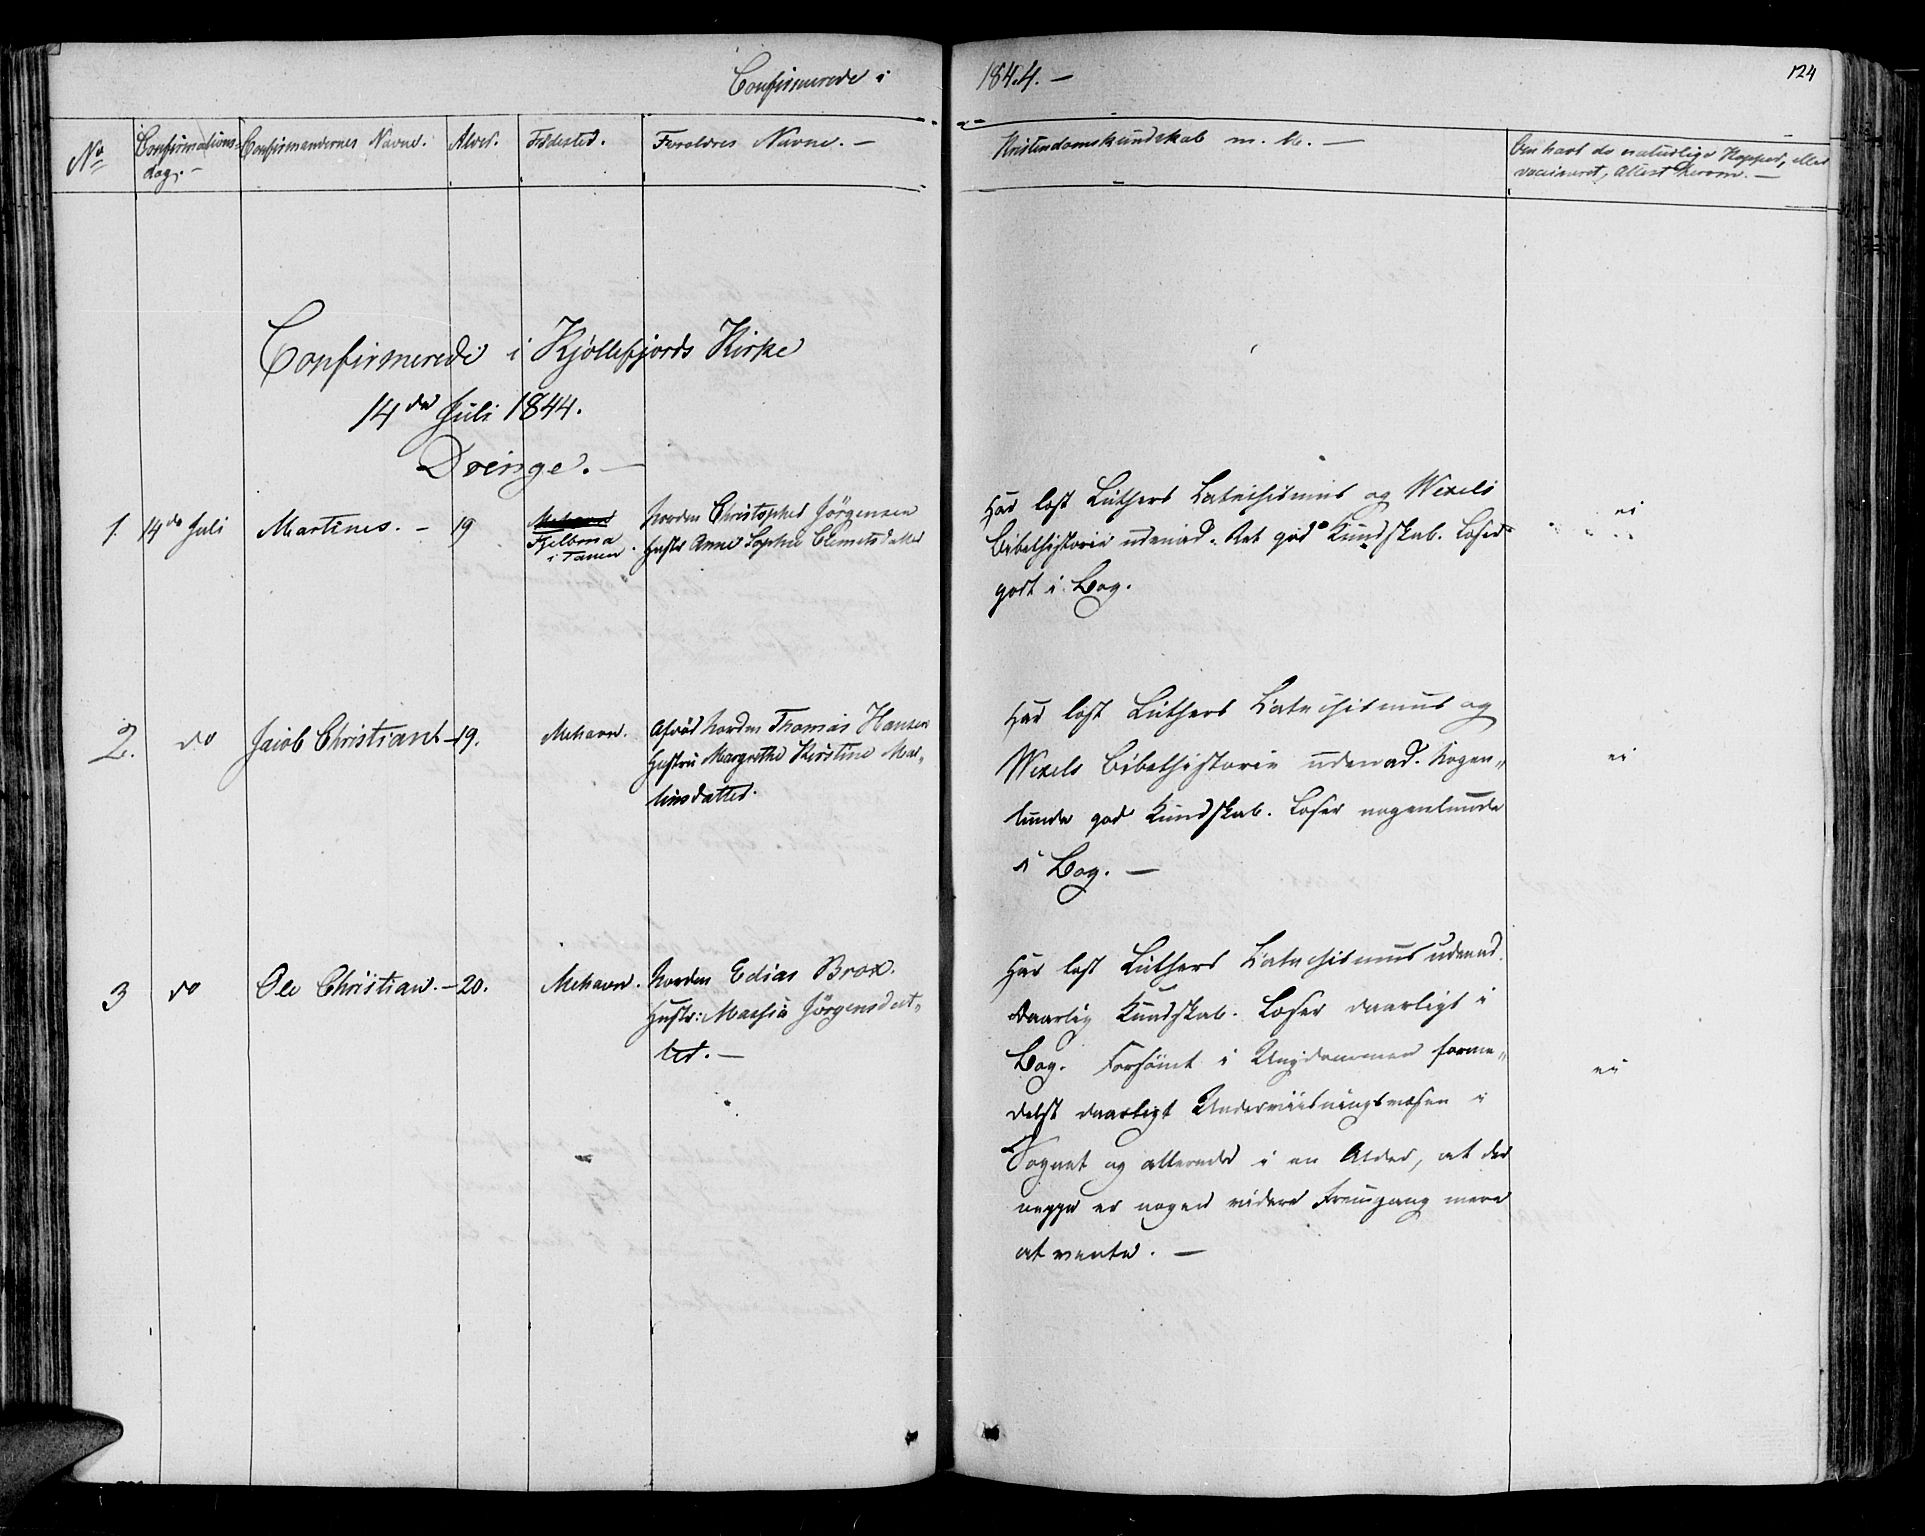 Confirmerede i 1844. —
124
No Confirmations-dag. — Confirmandernes Navne. Alder. Fødested. Forældres Navne. — Kristendomskundskab m. v. — Om havt de naturlige Kopper, eller
vaccineret, Attest herom. —
Confirmerede i Kjøllefjords Kirke
14de Juli 1844.
Drenge. —
1. 14de Juli Martines. — 19 i Tanen. Norden Christopher Jörgensen
Hustr Anne Sophie Clemetsdatter
Har læst Luthers Catechismus og Wexels
Bibelhistorie udenad. Ret god Kundskab. Læser
godt i Bog.
ei
2. do Jacob Christian — 19. Mehavn. Afdød Norden Thomas Hansen
Hustru Margrethe Kirstine Mar-
tinsdatter.
Har læst Luthers Catechismus og
Wexels Bibelhistorie udenad. Nogen-
lunde god Kundskab. Læser nogenlunde
i Bog. —
ei
3 do Ole Christian. — 20. Mehavn. Norden Edias Brox.
Hustr: Marsia Jörgensdat-
ter. —
Har læst Luthers Catechismus udenad.
Daarlig Kundskab. Læser daarligt i
Bog. Forsömt i Ungdommen forme-
delst daarligt Underviisningsvæsen i
Sognet og allerede i en Alder, at der
neppe er nogen videre Fremgang mere
at vente. —
ei